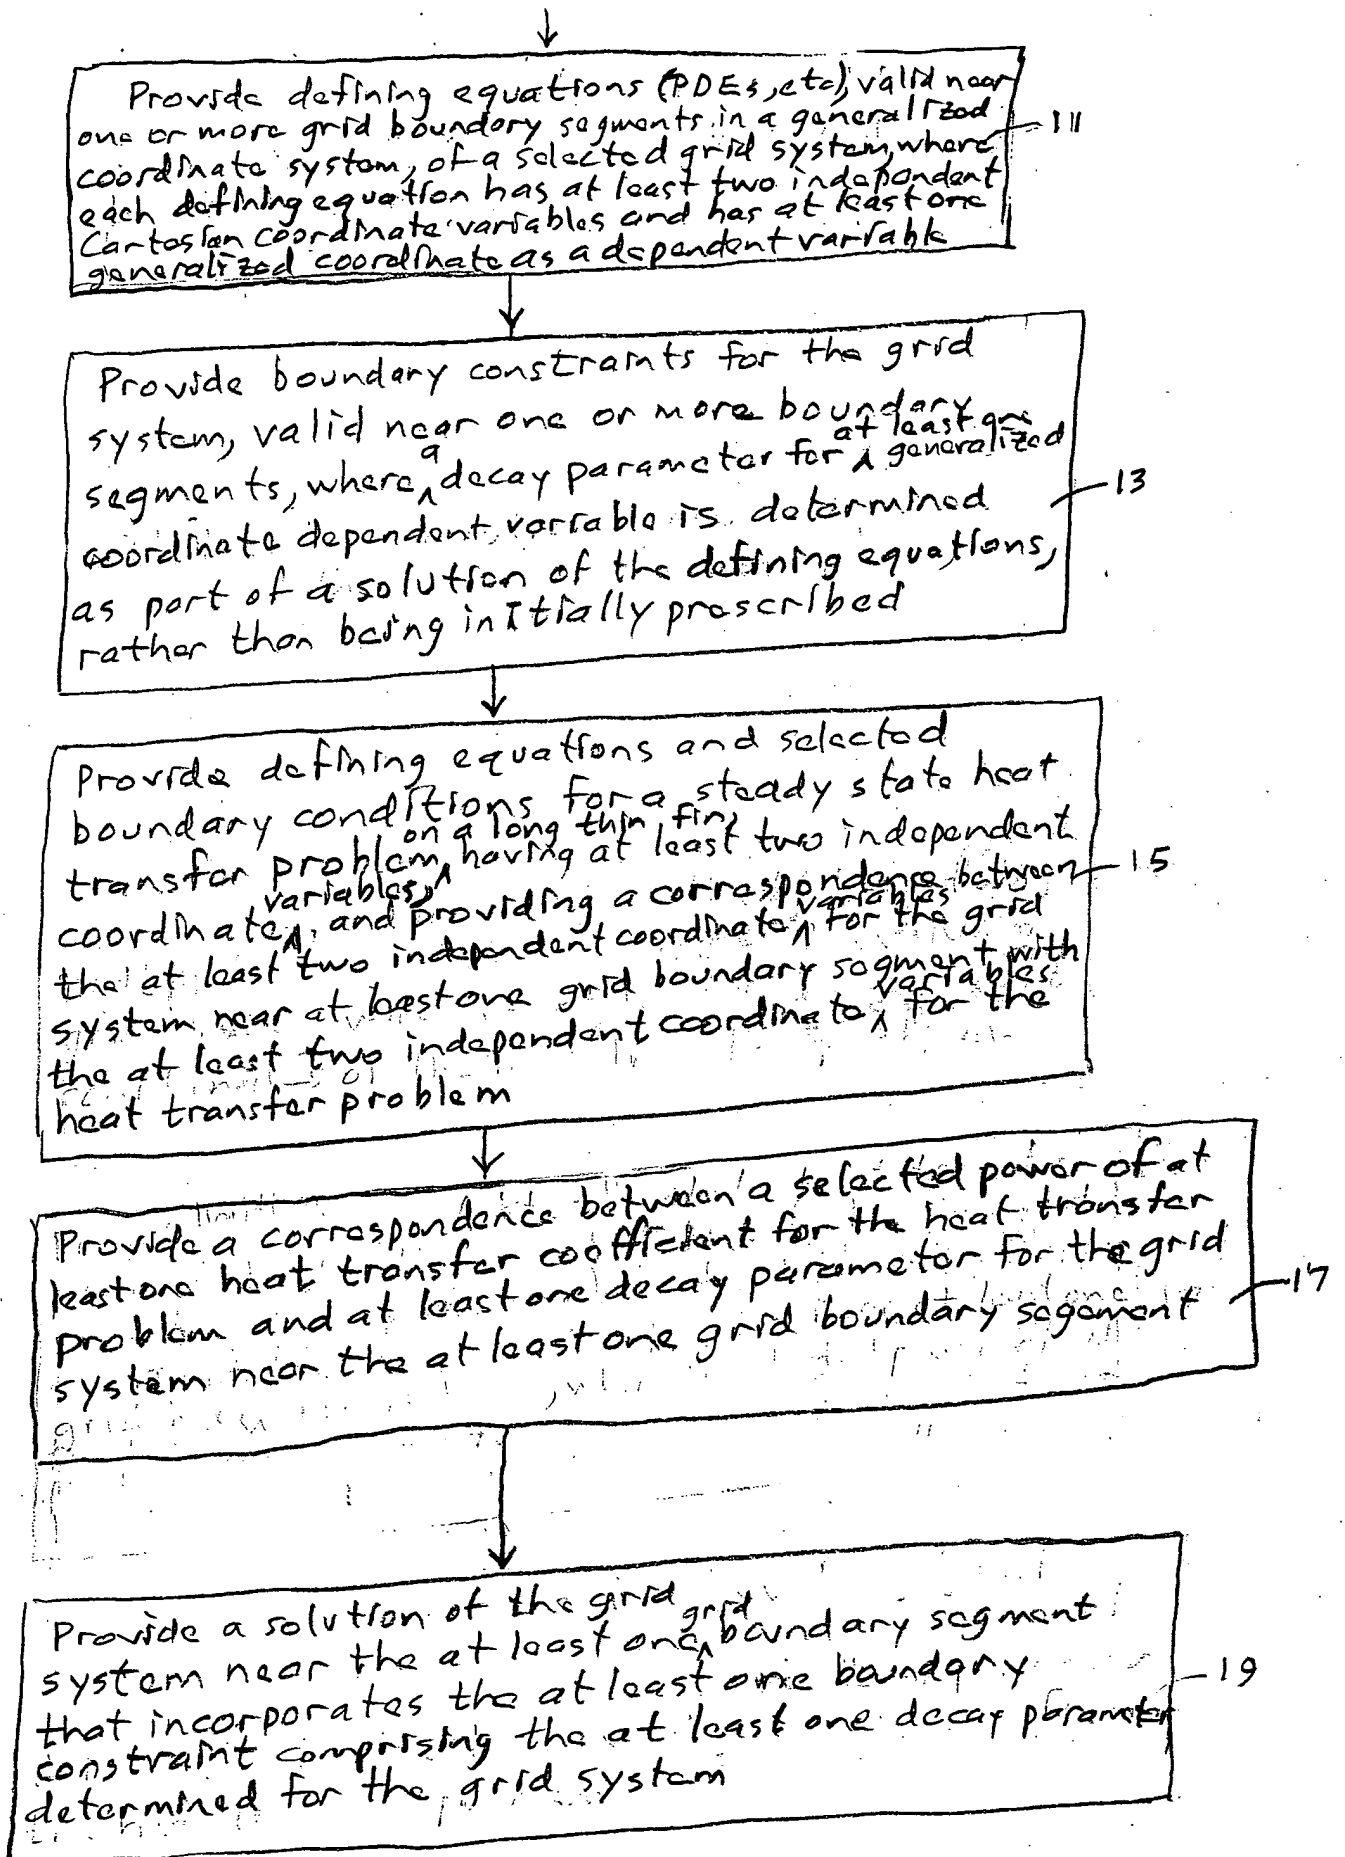 Provide defining equations (PDEs, etc), valid near
one or more grid boundary segments, in a generalized
coordinate system, of a selected grid system, where
each defining equation has at least two independent
Cartesian coordinate variables and has at least one
generalized coordinate as a dependent variable
11
Provide boundary constraints for the grid
system, valid near one or more boundary
segments, where a decay parameter for at least one generalized
coordinate dependent variable is determined
as part of a solution of the defining equations,
rather than being initially prescribed
13
Provide defining equations and selected
boundary conditions for a steady state heat
transfer problem on a long thin fin, having at least two independent
coordinate variables, and providing a correspondence between
the at least two independent coordinate variables for the grid
system near at least one grid boundary segment with
the at least two independent coordinate variables for the
heat transfer problem
15
Provide a correspondence between a selected power of at
least one heat transfer coefficient for the heat transfer
problem and at least one decay parameter for the grid
system near the at least one grid boundary segement
17
Provide a solution of the grid
system near the at least one grid boundary segment
that incorporates the at least one boundary
constraint comprising the at least one decay parameter
determined for the grid system
19